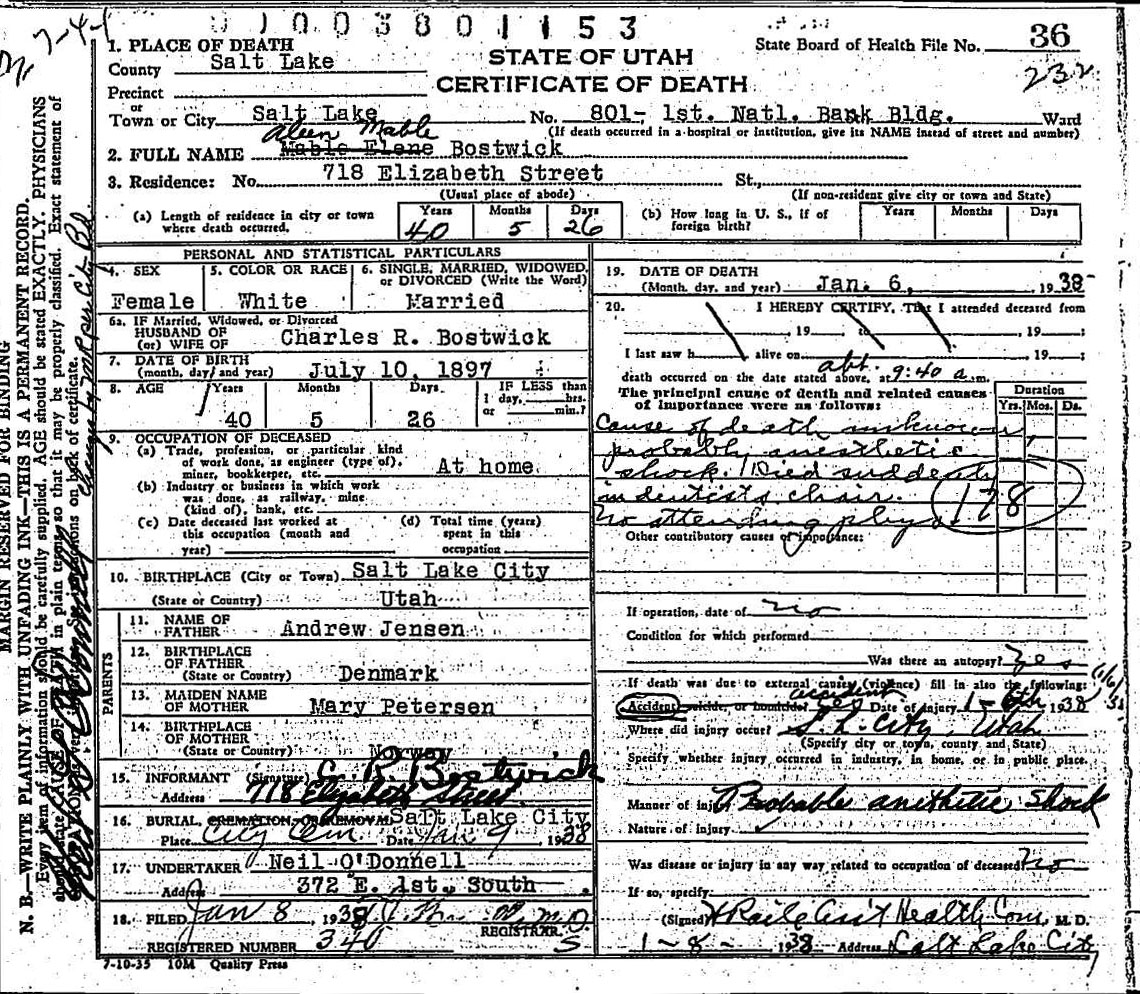 7-4-1
0 1 0 0 3 8 0 1 1 5 3
State Board of Health File No. 36
232
STATE OF UTAH
CERTIFICATE OF DEATH
1. PLACE OF DEATH
County Salt Lake
Precinct
or
Town or City Salt Lake No. 801- 1st. Natl. Bank Bldg. Ward
(If death occurred in a hospital or institution, give its NAME instead of street and number)
Aleen Mable
2. FULL NAME Mable Elene Bostwick
3. Residence: No. 718 Elizabeth Street St.,
(Usual place of abode) (If non-resident give city or town and State)
(a) Length of residence in city or town where death occurred. Years 40 Months 5 Days 26
(b) How long in U. S., if of foreign birth? Years Months Days
PERSONAL AND STATISTICAL PARTICULARS
4. SEX Female
5. COLOR OR RACE White
6. SINGLE, MARRIED, WIDOWED, or DIVORCED (Write the Word) Married
6a. IF Married, Widowed, or Divorced
HUSBAND OF
(or) WIFE OF Charles R. Bostwick
7. DATE OF BIRTH
(month, day and year) July 10, 1897
8. AGE Years 40 Months 5 Days 26
IF LESS than 1 day, hrs. or min.?
9. OCCUPATION OF DECEASED
(a) Trade, profession, or particular kind of work done, as engineer (type of), miner, bookkeeper, etc. At home
(b) Industry or business in which work was done, as railway, mine (kind of), bank, etc.
(c) Date deceased last worked at this occupation (month and year)
(d) Total time (years) spent in this occupation
10. BIRTHPLACE (City or Town) Salt Lake City
(State or Country) Utah
PARENTS
11. NAME OF FATHER Andrew Jensen
12. BIRTHPLACE OF FATHER
(State or Country) Denmark
13. MAIDEN NAME OF MOTHER Mary Petersen
14. BIRTHPLACE OF MOTHER
(State or Country) Norway
15. INFORMANT (Signature) C. R. Bostwick
Address 718 Elizabeth Street
16. BURIAL, CREMATION, OR REMOVAL Salt Lake City
Place City Cem Date Jan 9 1938
17. UNDERTAKER Neil O'Donnell
Address 372 E. 1st. South
18. FILED Jan 8, 1938 M.D.
REGISTRAR
REGISTERED NUMBER 340 S
7-10-35 10M Quality Press
19. DATE OF DEATH
(Month, day, and year) Jan. 6, 1938
20. I HEREBY CERTIFY, That I attended deceased from
19 to 19 ;
I last saw h alive on 19 ;
abt.
death occurred on the date stated above, at 9:40 a.m.
The principal cause of death and related causes of importance were as follows:
Duration
Yrs. Mos. Ds.
Cause of death unknown,
probably anesthetic
shock. Died suddenly
in dentists chair.
No attending phys.
178
Other contributory causes of importance:
If operation, date of no
Condition for which performed
Was there an autopsy? Yes
If death was due to external causes (violence) fill in also the following:
accident
Accident, suicide, or homicide? yes Date of injury 1-6th 1938
1/6/38
Where did injury occur? S. L. City, Utah
(Specify city or town, county and State)
Specify whether injury occurred in industry, in home, or in public place.
Manner of injury Probable anithetic shock
Nature of injury
Was disease or injury in any way related to occupation of deceased? No
If so, specify
(Signed) Ass't Health Com, M. D.
1-8-1938 Address Salt Lake City
MARGIN RESERVED FOR BINDING
N. B.—WRITE PLAINLY WITH UNFADING INK—THIS IS A PERMANENT RECORD.
Every item of information should be carefully supplied. AGE should be stated EXACTLY. PHYSICIANS
should state CAUSE OF DEATH in plain terms so that it may be properly classified. Exact statement of
OCCUPATION is very important. See instructions on back of certificate.